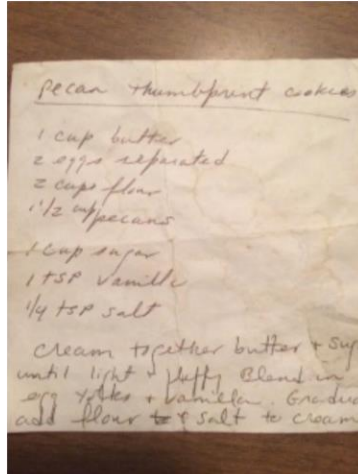 pecan thumbprint cookies
1 cup butter
2 eggs separated
2 cups flour
1 1/2 cup pecans
1 cup sugar
1 TSP vanilla
1/4 TSP salt
cream together butter + sug
until light + fluffy Blend in
egg yolks + vanilla. Gradua
add flour + salt to cream